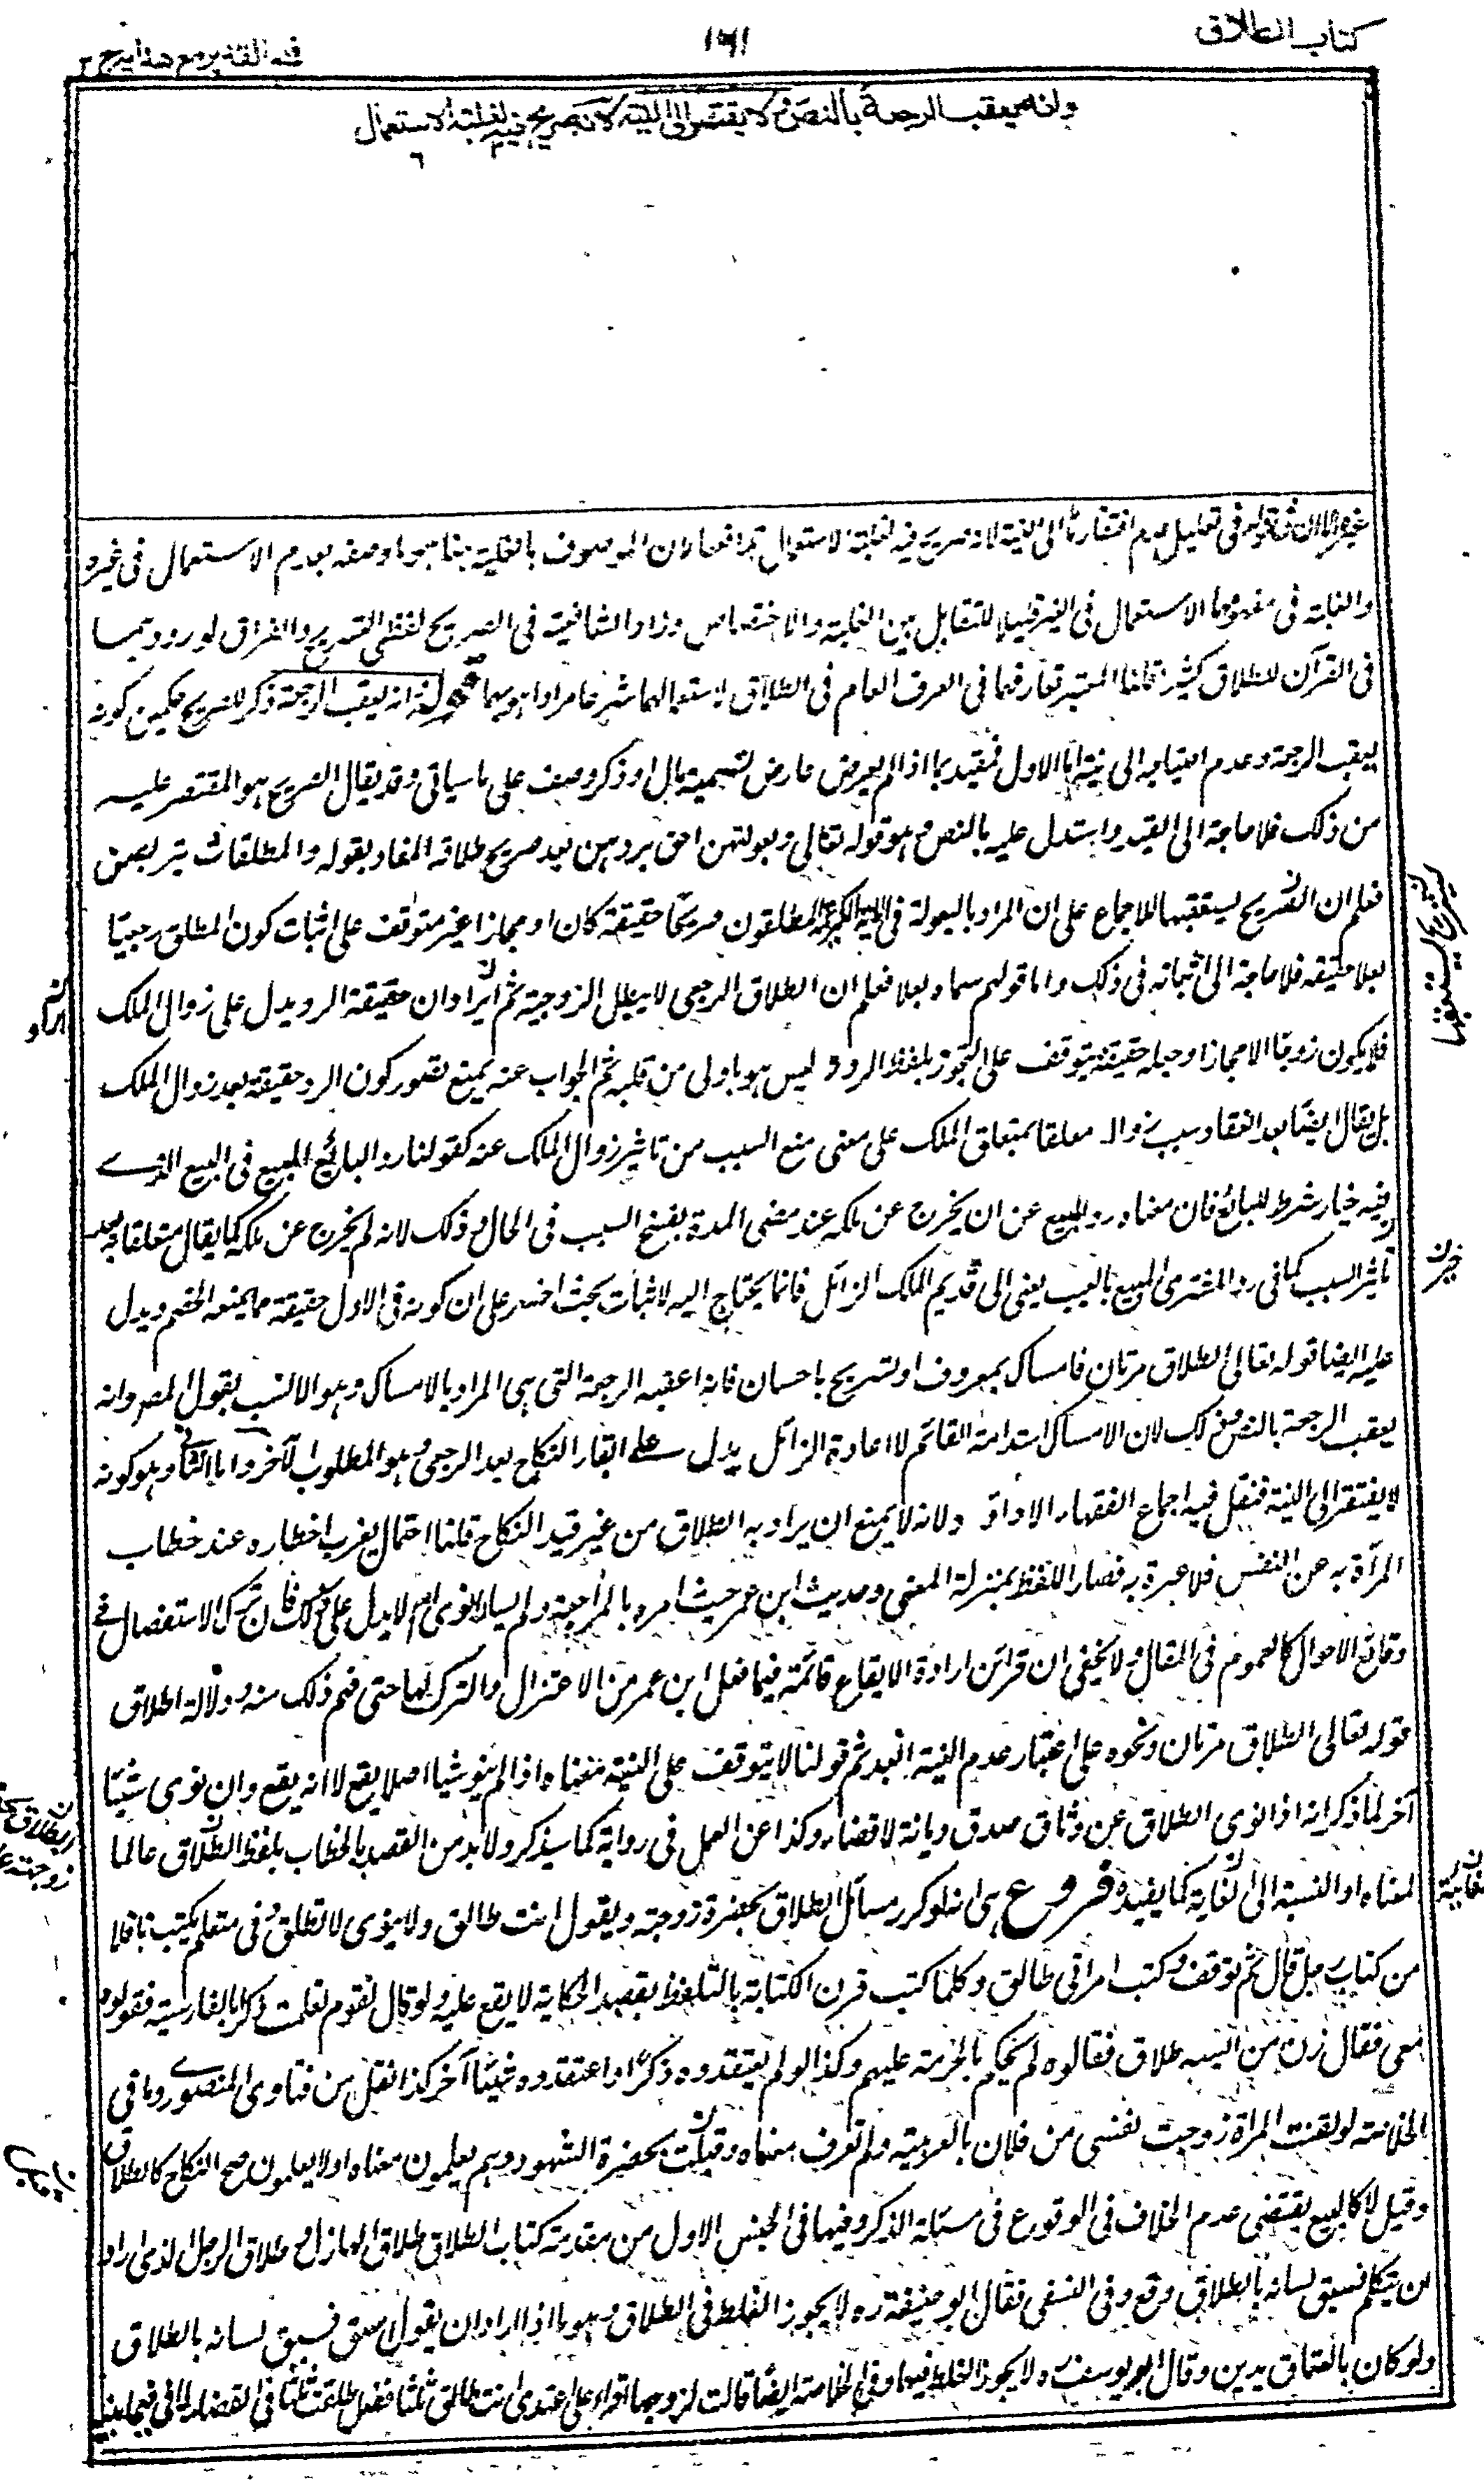 كتاب الطلاق
١٦١
فتح القدير مع هداية ج ٢
وانه يعقب الرجعة بالنص ولا يفتقر الى النية لانه صريح فيه لغلبة الاستعمال
قولهم فى تعليل عدم افتقاره الى النية لانه صريح فيه لغلبة الاستعمال لان الموصوف بالغلبة هنا هو ما وصفه بعدم الاستعمال فى غيره
والغلبة فى مفهومها الاستعمال فى الغير قليلا للتقابل بين الغلبة والاختصاص وزاد الشافعية فى الصريح لفظى التسريح والفراق لورودهما
فى القرآن للطلاق كثيرا قلنا المعتبر تعارفهما فى العرف العام فى الطلاق لاستعمالهما شرعا مرادا هو بهما قوله انه يعقب الرجعة ذكر للصريح حكمين كونه
يعقب الرجعة وعدم احتياجه الى نية اما الاول فمقيد بما اذا لم يعرض عارض تسمية مال او ذكر وصف على ما سياتى وقد يقال الصريح هو المقتصر عليه
من ذلك فلا حاجة الى القيد واستدل عليه بالنص وهو قوله تعالى وبعولتهن احق بردهن بعد صريح طلاقه المفاد بقوله والمطلقات يتربصن
فعلم ان الصريح يستعقبها للاجماع على ان المراد بالبعولة فى الآية المطلقون صريحا حقيقة كان او مجازا غير متوقف على اثبات كون المطلق رجعيا
بعلا حقيقة فلا حاجة الى اثباته فى ذلك واما قولهم سماه بعلا فعلم ان الطلاق الرجعى لا يبطل الزوجية ثم ايراد ان حقيقة الرد يدل على زوال الملك
فلا يكون زوجا الا مجازا وجعله حقيقة يتوقف على التجوز بلفظ الرد وليس هو باولى من قلبه ثم الجواب عنه بمنع تصور كون الرد حقيقة بعد زوال الملك
بل يقال ايضا بعد انعقاد سبب زواله معلقا بمتعلق الملك على معنى منع السبب من تاثير زوال الملك عنه كقولنا رد البائع المبيع فى البيع الذى
فيه خيار شرط للبائع فان معناه رد المبيع عن ان يخرج عن ملكه عند مضى المدة بفسخ السبب فى الحال وذلك لانه لم يخرج عن ملكه كما يقال متعلقا به بعد
تاثير السبب كما فى رد المشترى المبيع بالعيب يعنى الى قديم الملك الزائل فانما يحتاج اليه لاثبات بحث اخر على ان كونه فى الاول حقيقة مما يمنعه الخصم ويدل
عليه ايضا قوله تعالى الطلاق مرتان فامساك بمعروف او تسريح باحسان فانه اعقبه الرجعة التى هى المراد بالامساك وهو الانسب بقول المصر وانه
يعقب الرجعة بالنص وذلك لان الامساك استدامة القائم لا اعادة الزائل يدل على ابقاء النكاح بعد الرجعى وهو المطلوب الآخر واما الثانى وهو كونه
لا يفتقر الى النية فنقل فيه اجماع الفقهاء الا داؤد ولانه لا يمنع ان يراد به الطلاق من غير قيد النكاح قلنا احتمال يغرب اخطاره عند خطاب
المرأة به عن النفس فلا عبرة به فصار اللفظ بمنزلة المعنى وحديث ابن عمر حيث امره بالمراجعة ولم يسأله انوى ام لا يدل على ذلك فان ترك الاستفصال فى
وقائع الاحوال كالعموم فى المقال ولا يخفى ان قرائن ارادة الايقاع قائمة فيما فعل ابن عمر من الاعتزال والترك لها حتى فهم ذلك منه ودلالة اطلاق
قوله تعالى الطلاق مرتان ونحوه على اعتبار عدم النية ابعد ثم قولنا لا يتوقف على النية معناه اذا لم ينو شيئا اصلا يقع لا انه يقع وان نوى شيئا
آخر لما ذكر انه اذا نوى الطلاق عن وثاق صدق ديانة لا قضاء وكذا عن العمل فى رواية كما سيذكر ولا بد من القصد بالخطاب بلفظ الطلاق عالما
لمعناه او النسبة الى الغاية كما يفيده فروع هى انه لو كرر مسائل الطلاق بحضرة زوجته ويقول انت طالق ولا ينوى لا تطلق وفى متعلم يكتب ناقلا
من كتاب رجل قال ثم توقف وكتب امرأتى طالق وكلما كتب قرن الكتابة بالتلفظ بقصد الحكاية لا يقع عليه ولو قال لقوم تعلمت ذكرا بالفارسية فقولوه
معى فقال زن من السه طلاق فقالوه لم يحكم بالحرمة عليهم وكذا لو لم يعتقدوه ذكرا واعتقدوه شيئا آخر كذا نقل من فتاوى المنصورى وما فى
الخلاصة لو لقنت المرأة زوجت نفسى من فلان بالعربية ولم تعرف معناه وقبلت بحضرة الشهود وهم يعلمون معناه او لا يعلمون صح النكاح كالطلاق
وقيل لا كالبيع يقتضى عدم الخلاف فى الوقوع فى مسئلة الذكر وفيها فى الجنس الاول من مقدمة كتاب الطلاق طلاق الهازل وطلاق الرجل الذى اراد
ان يتكلم فسبق لسانه بالطلاق وقع وفى النسفى فقال ابو حنيفة ره لا يجوز الغلط فى الطلاق وهو ما اذا اراد ان يقول اسقى فسبق لسانه بالطلاق
ولو كان بالعتاق يدين وقال ابو يوسف ره لا يجوز الغلط فيهما وفى الخلاصة ايضا قالت لزوجها اقرأ على اعتدى انت طالق ثلثا ففعل طلقت ثلثا فى القضاء لا فيما بينه